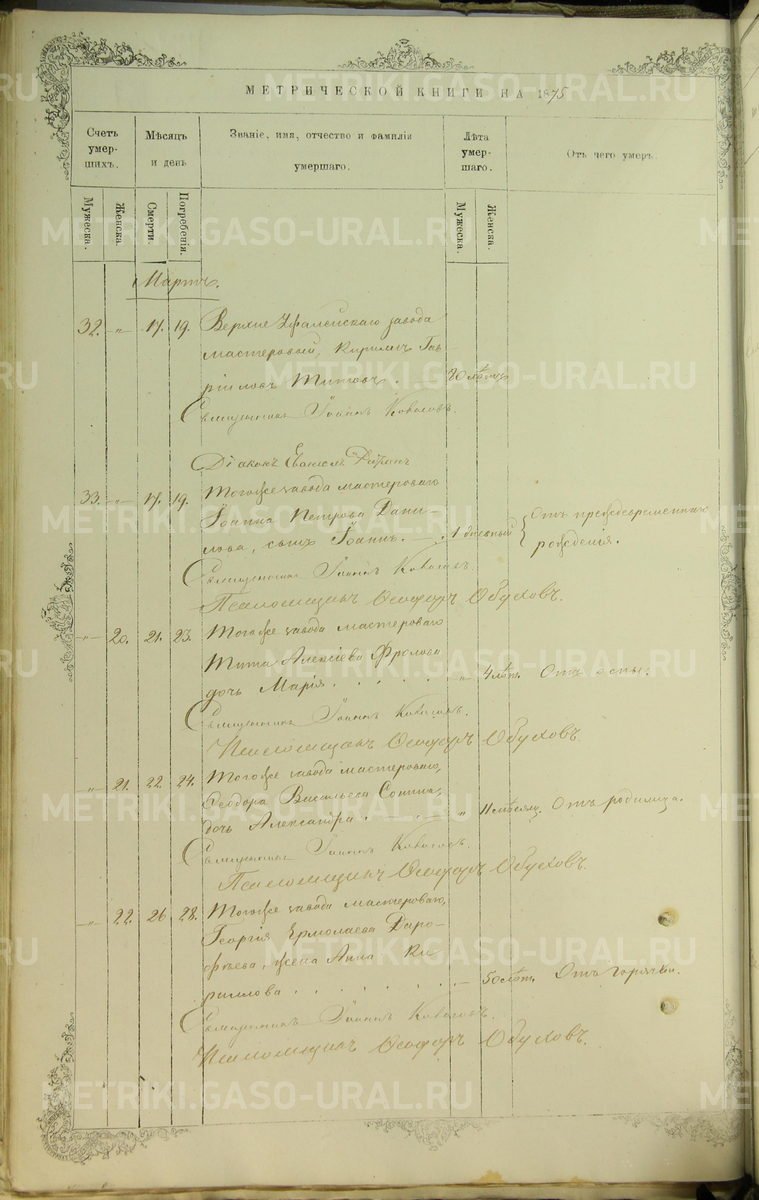 МЕТРИЧЕСКОЙ КНИГИ НА 1875
Счетъ умершихъ.
Мѣсяцъ и день
Званіе, имя, отчество и фамилія умершаго.
Лѣта умершаго.
Отъ чего умеръ.
Мужеска.
Женска.
Смерти.
Погребенія.
Мужеска.
Женска.
Мартъ.
32. „ 17. 19. Верхне Уфалейскаго завода
мастеровой, Кириллъ Гав-
ріиловъ Титовъ. 70 лѣтъ
Священникъ Іоаннъ
Діаконъ
33. „ 17. 19. Тогоже завода мастероваго
Іоанна Петрова Дани-
лова, сынъ Іоаннъ. 1 дневный Отъ преждевременнаго
рожденія.
Священникъ Іоаннъ
Псаломщикъ Обуховъ.
„ 20. 21. 23. Тогоже завода мастероваго
Тита Алексіева Фролова
дочь Марія . . . . . „ 4 лѣт. Отъ оспы.
Священникъ Іоаннъ
Псаломщикъ Обуховъ
„ 21. 22. 24. Тогоже завода мастероваго,
Ѳеодора Васильева
дочь Александра . . . „ 11 мѣсяц. Отъ родимца.
Священникъ Іоаннъ
Псаломщикъ Обуховъ.
„ 22. 26 28. Тогоже завода мастероваго,
Георгія Ермолаева Даро-
фѣева, жена Анна Ки-
риллова . . . . . . . — 50 лѣт. Отъ горячки.
Священникъ Іоаннъ
Псаломщикъ Обуховъ.
METRIKI.GASO-URAL.RU